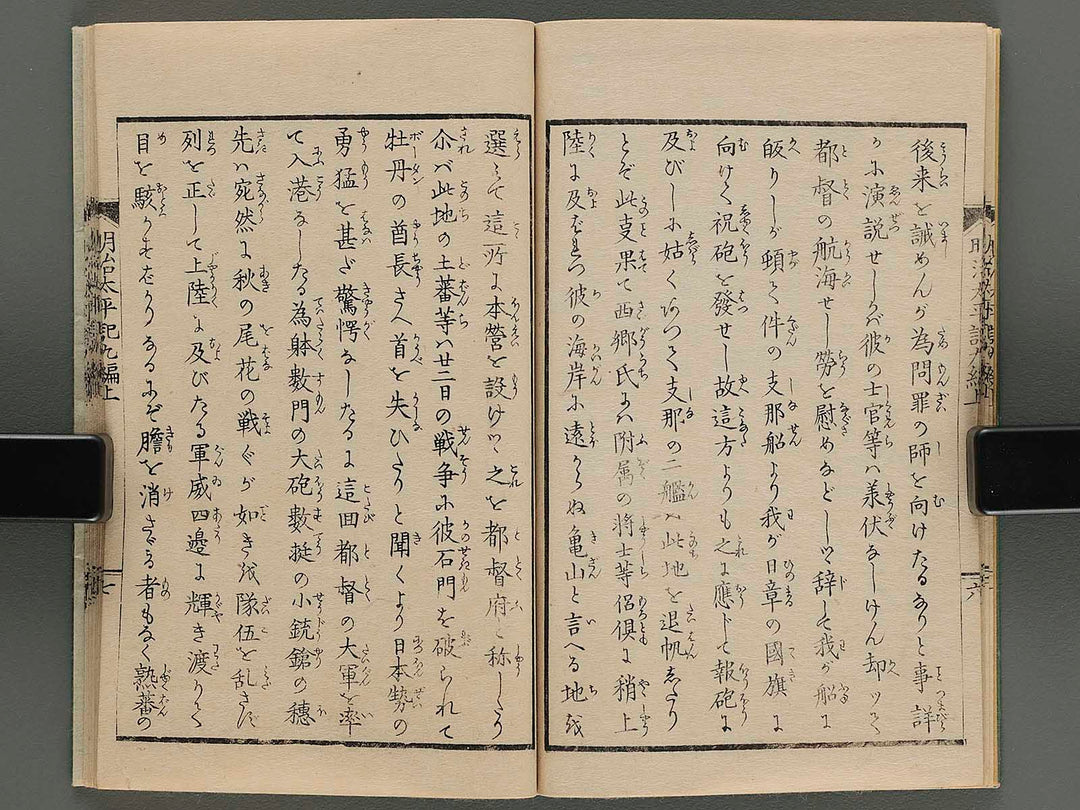 後来を誡めんが為問罪の師を向けたるありと事詳
かに演説せしかバ彼の士官等ハ兼伏なしけん却ッて
都督の航海せし勞を慰めなどしツヽ辞して我が船に
皈りしが頓て件の支那船より我が日章の國旗に
向けて祝砲を發せし故這方よりも之に應じて報砲に
及びしに姑くありて支那の二艦ハ此地を退帆したり
とぞ此㕝果て西郷氏にハ附属の将士等侶倶に稍上
陸に及ばれつ彼の海岸に遠からぬ亀山と言へる地を
選みて這所に本營を設けツヽ之を都督府と称したり
尒バ此地の土蕃等ハ廿二日の戦争に彼石門を破られて
牡丹の酋長さへ首を失ひたりと聞くより日本勢の
勇猛を甚だ驚愕なしたるに這回都督の大軍を率
て入港なしたる為躰数門の大砲數挺の小銃鎗の穂
先ハ宛然に秋の尾花の戦ぐが如き隊伍を乱さず
列を正して上陸に及びたる軍威四邊に輝き渡りて
目を駭かすばかりなるにぞ膽を消さゞる者もなく熟蕃の
明治太平記九編上
六
明治太平記九編上
七